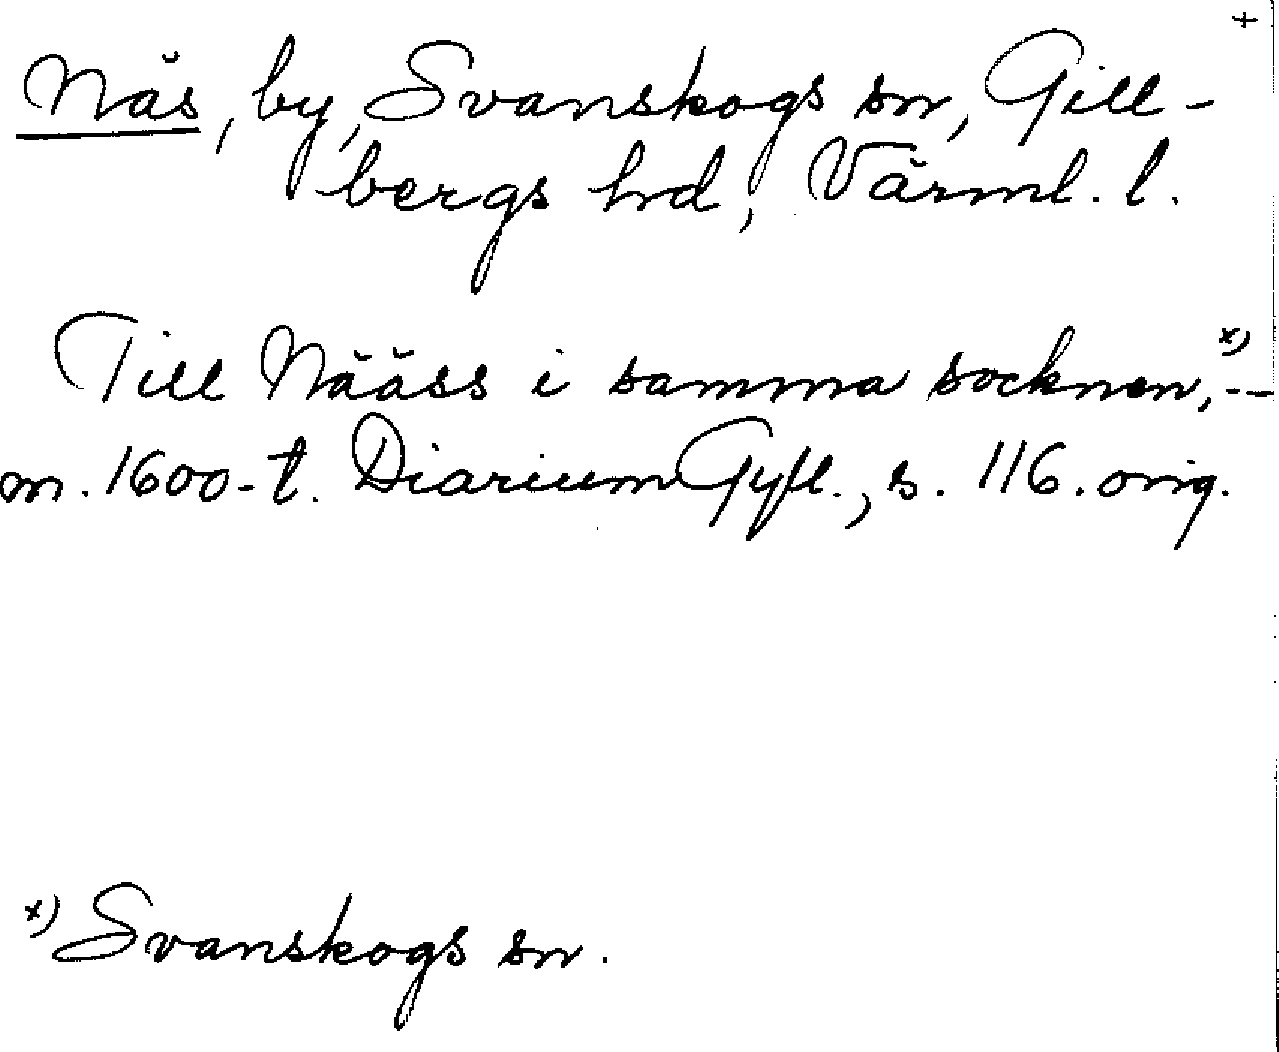 +
Näs, by, Svanskogs sn, Gill-
bergs hrd, Värml. l.
Till Nääss i samma socknen,x) --
m. 1600-t. Diarium Gyll., s. 116. orig.
x) Svanskogs sn.